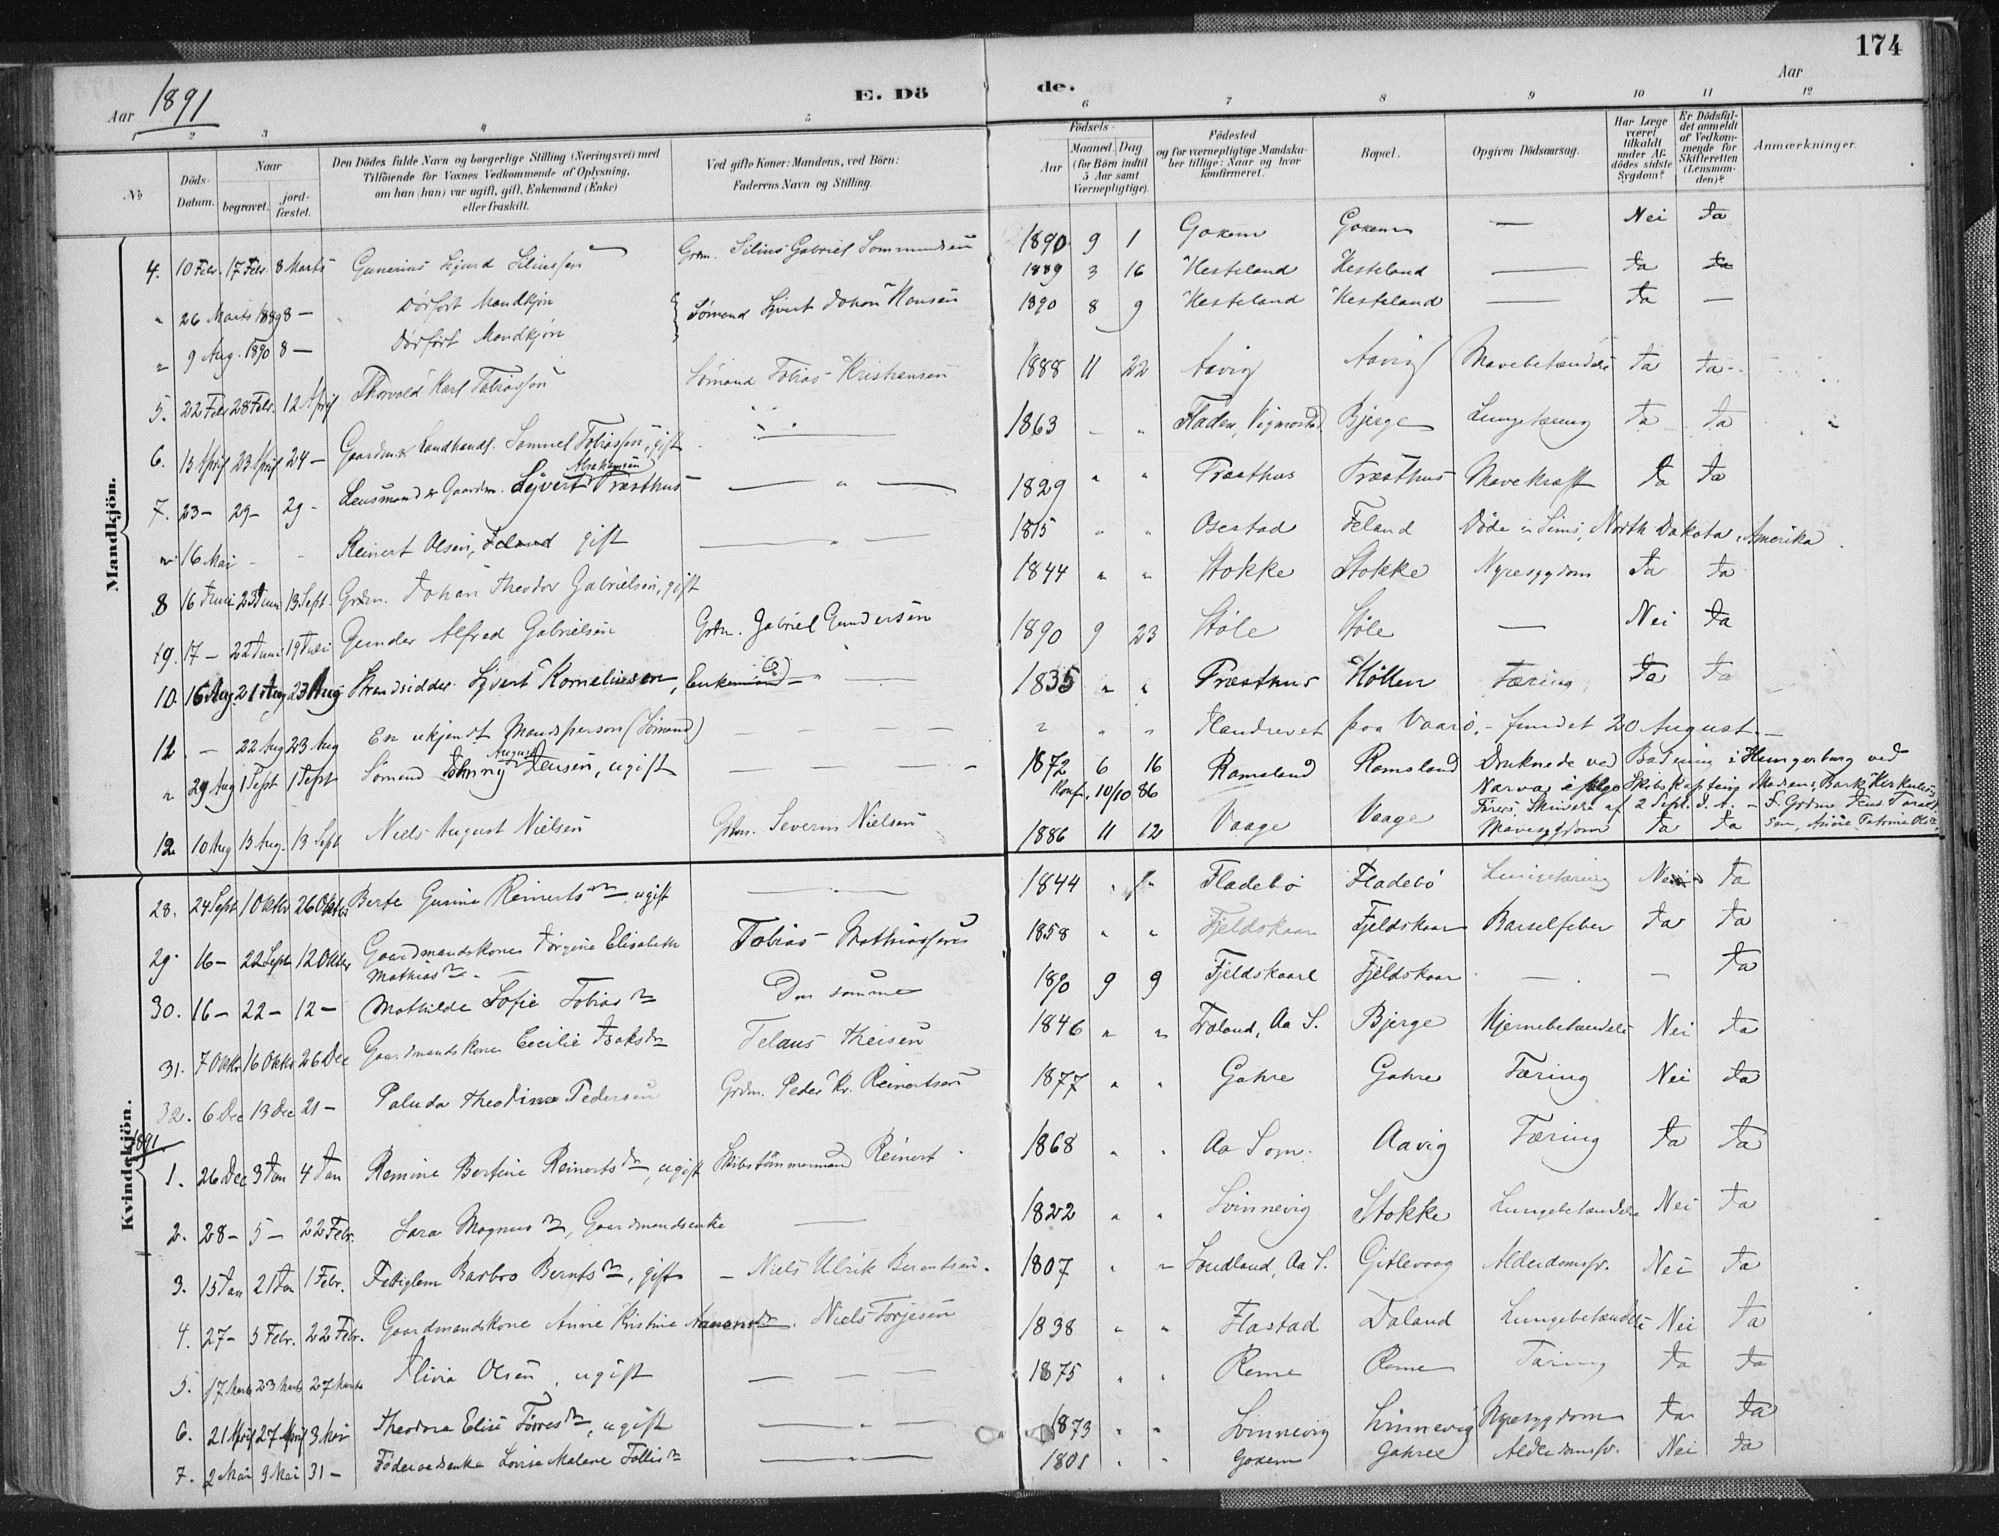 174
Aar 1891
E. Dö de.
Aar
2 3 4 5 6 7 8 9 10 11 12
No
Döds-Datum.
Naar
begravet.
jord-fæstet.
Den Dödes fulde Navn og borgerlige Stilling (Næringsvei) med
Tilföiende for Voxnes Vedkommende af Oplysning,
om han (hun) var ugift, gift, Enkemand (Enke)
eller fraskilt.
Ved gifte Koner: Mandens, ved Börn:
Faderens Navn og Stilling.
Födsels-
Aar
Maaned. Dag.
(for Börn indtil
5 Aar samt
Værnepligtige).
Födested
og for værnepligtige Mandska-
ber tillige: Naar og hvor
konfirmeret.
Bopæl.
Opgiven Dödsaarsag.
Har Læge
været
tilkaldt
under Af-
dödes sidste
Sygdom?
Er Dödsfal-
det anmeldt
af Vedkom-
mende for
Skifteretten
(Lensman-
den)?
Anmærkninger.
Mandkjön.
4. 10 Febr. 17 Febr. 8 Marts Gunerius Sigurd Siliussen Grdm. Silius Gabriel Sommundsen 1890 9 1 Goxem Goxem — Nei Ja
" 26 Marts 1889 8 — Dödfört Mandkjön Sömand Sivert Johan Hansen 1889 3 16 Hesteland Hesteland — Ja Ja
" 9 Aug. 1890 8 — Dödfört Mandkjön 1890 8 9 Hesteland Hesteland — Ja —
5. 22 Febr 28 Febr. 12 April Thorvald Karl Tobiassen Sömand Tobias Kristiansen 1888 11 22 Aavig Aavig Mavebetændelse Ja Ja
6. 15 April 23 April 24 — Gaardm. & Landhandl. Samuel Tobiassen, gift — 1863 " " Fladen, Vigmostad Bjerge Lungetæring Ja Ja
7. 23 — 29 — 29 — Lensmand & Gaardm. Sivert Abrahamsen Træsthus — " — 1829 " " Præsthus Præsthus Mavekræft Ja Ja
" 16 Mai — Reinert Olsen, Feland gift — " — 1815 " " Osestad Feland Döde i Sims, North Dakota, Amerika
8 16 Juni 23 Juni 13 Sept. Grdm. Johan Theodor Gabrielsen, gift 1844 " " Stokke Stokke Nyresygdom Ja Ja
9. 17 — 22 Juni 19 Juli Gunder Alfred Gabrielsen Grdm. Gabriel Gundersen 1890 9 23 Støle Støle — Nei Ja
10. 16 Aug. 21 Aug 23 Aug Strandsidder Sivert Korneliussen, Enkemand — " — 1835 " " Præsthus Höllen Tæring Ja Ja
11. — 22 Aug 23 Aug En ukjendt Mandsperson (Sömand) — — — " " " Ilandrevet paa Vaarö. - fundet 20 August. —
" 29 Aug 1 Sept 1 Sept Sömand Johnny August Jensen, ugift — — — 1872 6 16 Ramsland Ramsland Druknede ved Badning i Hungerburg ved
Konf. 10/10 86 Narva ifølge Skibskapteins Bark Herkules
Skrivelse af 2 Sept. d. A.
12. 10 Aug 15 Aug. 13 Sept Niels August Nielsen Grdm. Severin Nielsen 1886 11 12 Vaage Vaage Mavesygdom Ja Ja
Kvindekjön.
28. 24 Sept 1 Oktbr 26 Oktbr Berte Gurine Reinertsdtr ugift — 1844 " " Fladebö Fladebö Lungetæring Nei Ja
29. 16 — 22 Sept 12 Oktbr Gaardmandskone Jørgine Elisabeth
Mathiasdtr. Tobias Mathiassen 1858 " " Fjeldskaar Fjeldskaar Barselfeber Ja Ja
30. 16 — 22 — 12 — Mathilde Sofie Tobiasdtr Den samme 1890 9 9 Fjeldskaar Fjeldskaar — — Ja
31. 7 Oktbr 16 Oktbr 26 Dec Gaardmandskone Cecilie Isaksdtr Telaus Theisen 1846 " " Fæland, Aa S. Bjerge Hjernebetændelse Nei Ja
32. 6 Dec 13 Dec 21 — Paluda Theodine Pedersen Grdm. Peder Kr. Reinertsen 1877 " " Gahre Gahre Tæring Nei Ja
1891
1. 26 Dec 3 Jan 4 Jan Ramine Bertine Reinertsdtr, ugift Skibstömmermand Reinert 1868 " " Aa Sogn. Aavig Tæring Ja Ja
2. 28 — 5 — 22 Febr. Sara Magnusdtr, Gaardmandsenke — 1822 " " Svinnevig Stokke Lungebetændelse Nei Ja
3. 15 Jan 21 Jan 1 Febr. Fattiglem Barbro Berntsdtr, gift — Niels Ulrik Berentsen. 1807 " " Sundland, Aa S. Gitlevaag Alderdomssv. Nei Ja
4. 27 — 5 Febr. 22 Febr. Gaardmandskone Anne Kristine Aanensdtr. Niels Torjesen 1838 " " Hastad Daland Lungebetændelse Nei Ja
5. 17 Marts 23 Marts 27 Marts Alivia Olsen, ugift — — — 1875 " " Reme Reme Tæring Ja Ja
6. 21 April 27 April 3 Mai Theodora Elise Törresdtr, ugift — " — 1873 " " Svinnevig Svinnevig Nyresygdom Ja Ja
7. 2 Mai 9 Mai 31 — Föderaadsenke Lovise Malene Tollisdtr — 1801 " " Goxem Gahre Alderdomssv. Nei Ja